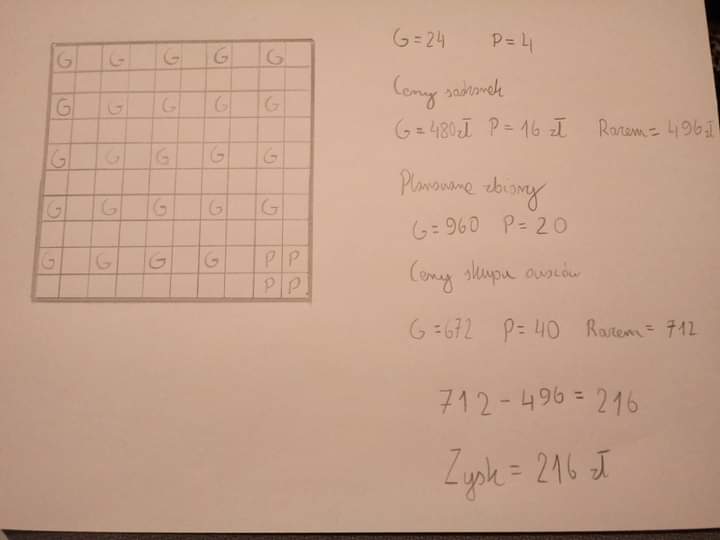 G G G G G
G G G G G
G G G G G
G G G G G
G G G G P P
P P
G = 24 P = 4
Ceny sadzonek
G = 480 zł P = 16 zł Razem = 496 zł
Planowane zbiory
G = 960 P = 20
Ceny skupu owoców
G = 672 P = 40 Razem = 712
712 - 496 = 216
Zysk = 216 zł